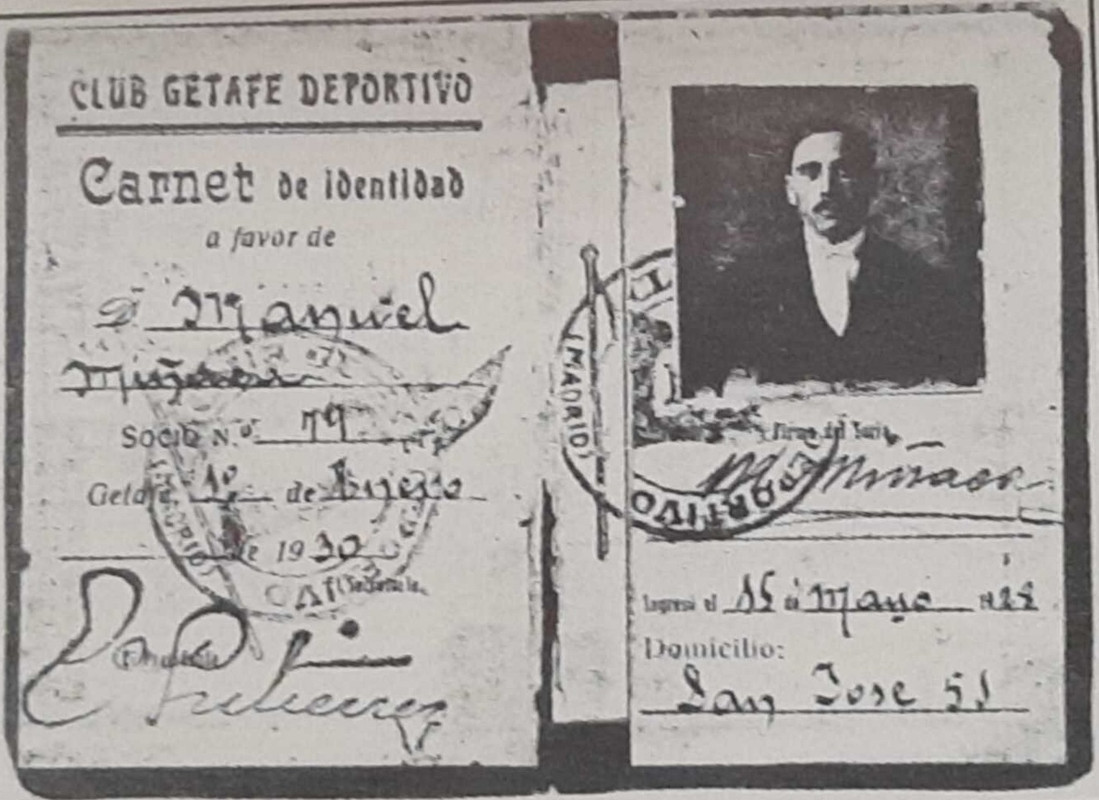 CLUB GETAFE DEPORTIVO
Carnet de identidad
a favor de
D. Manuel
Socio N.º 79
Getafe 1º de Enero
de 1930
Gutierrez
(MADRID)
DEPORTIVO
(MADRID)
Firma del Socio
M. Miñaca
Ingresó el 15 de Mayo 1928
Domicilio:
San Jose 51